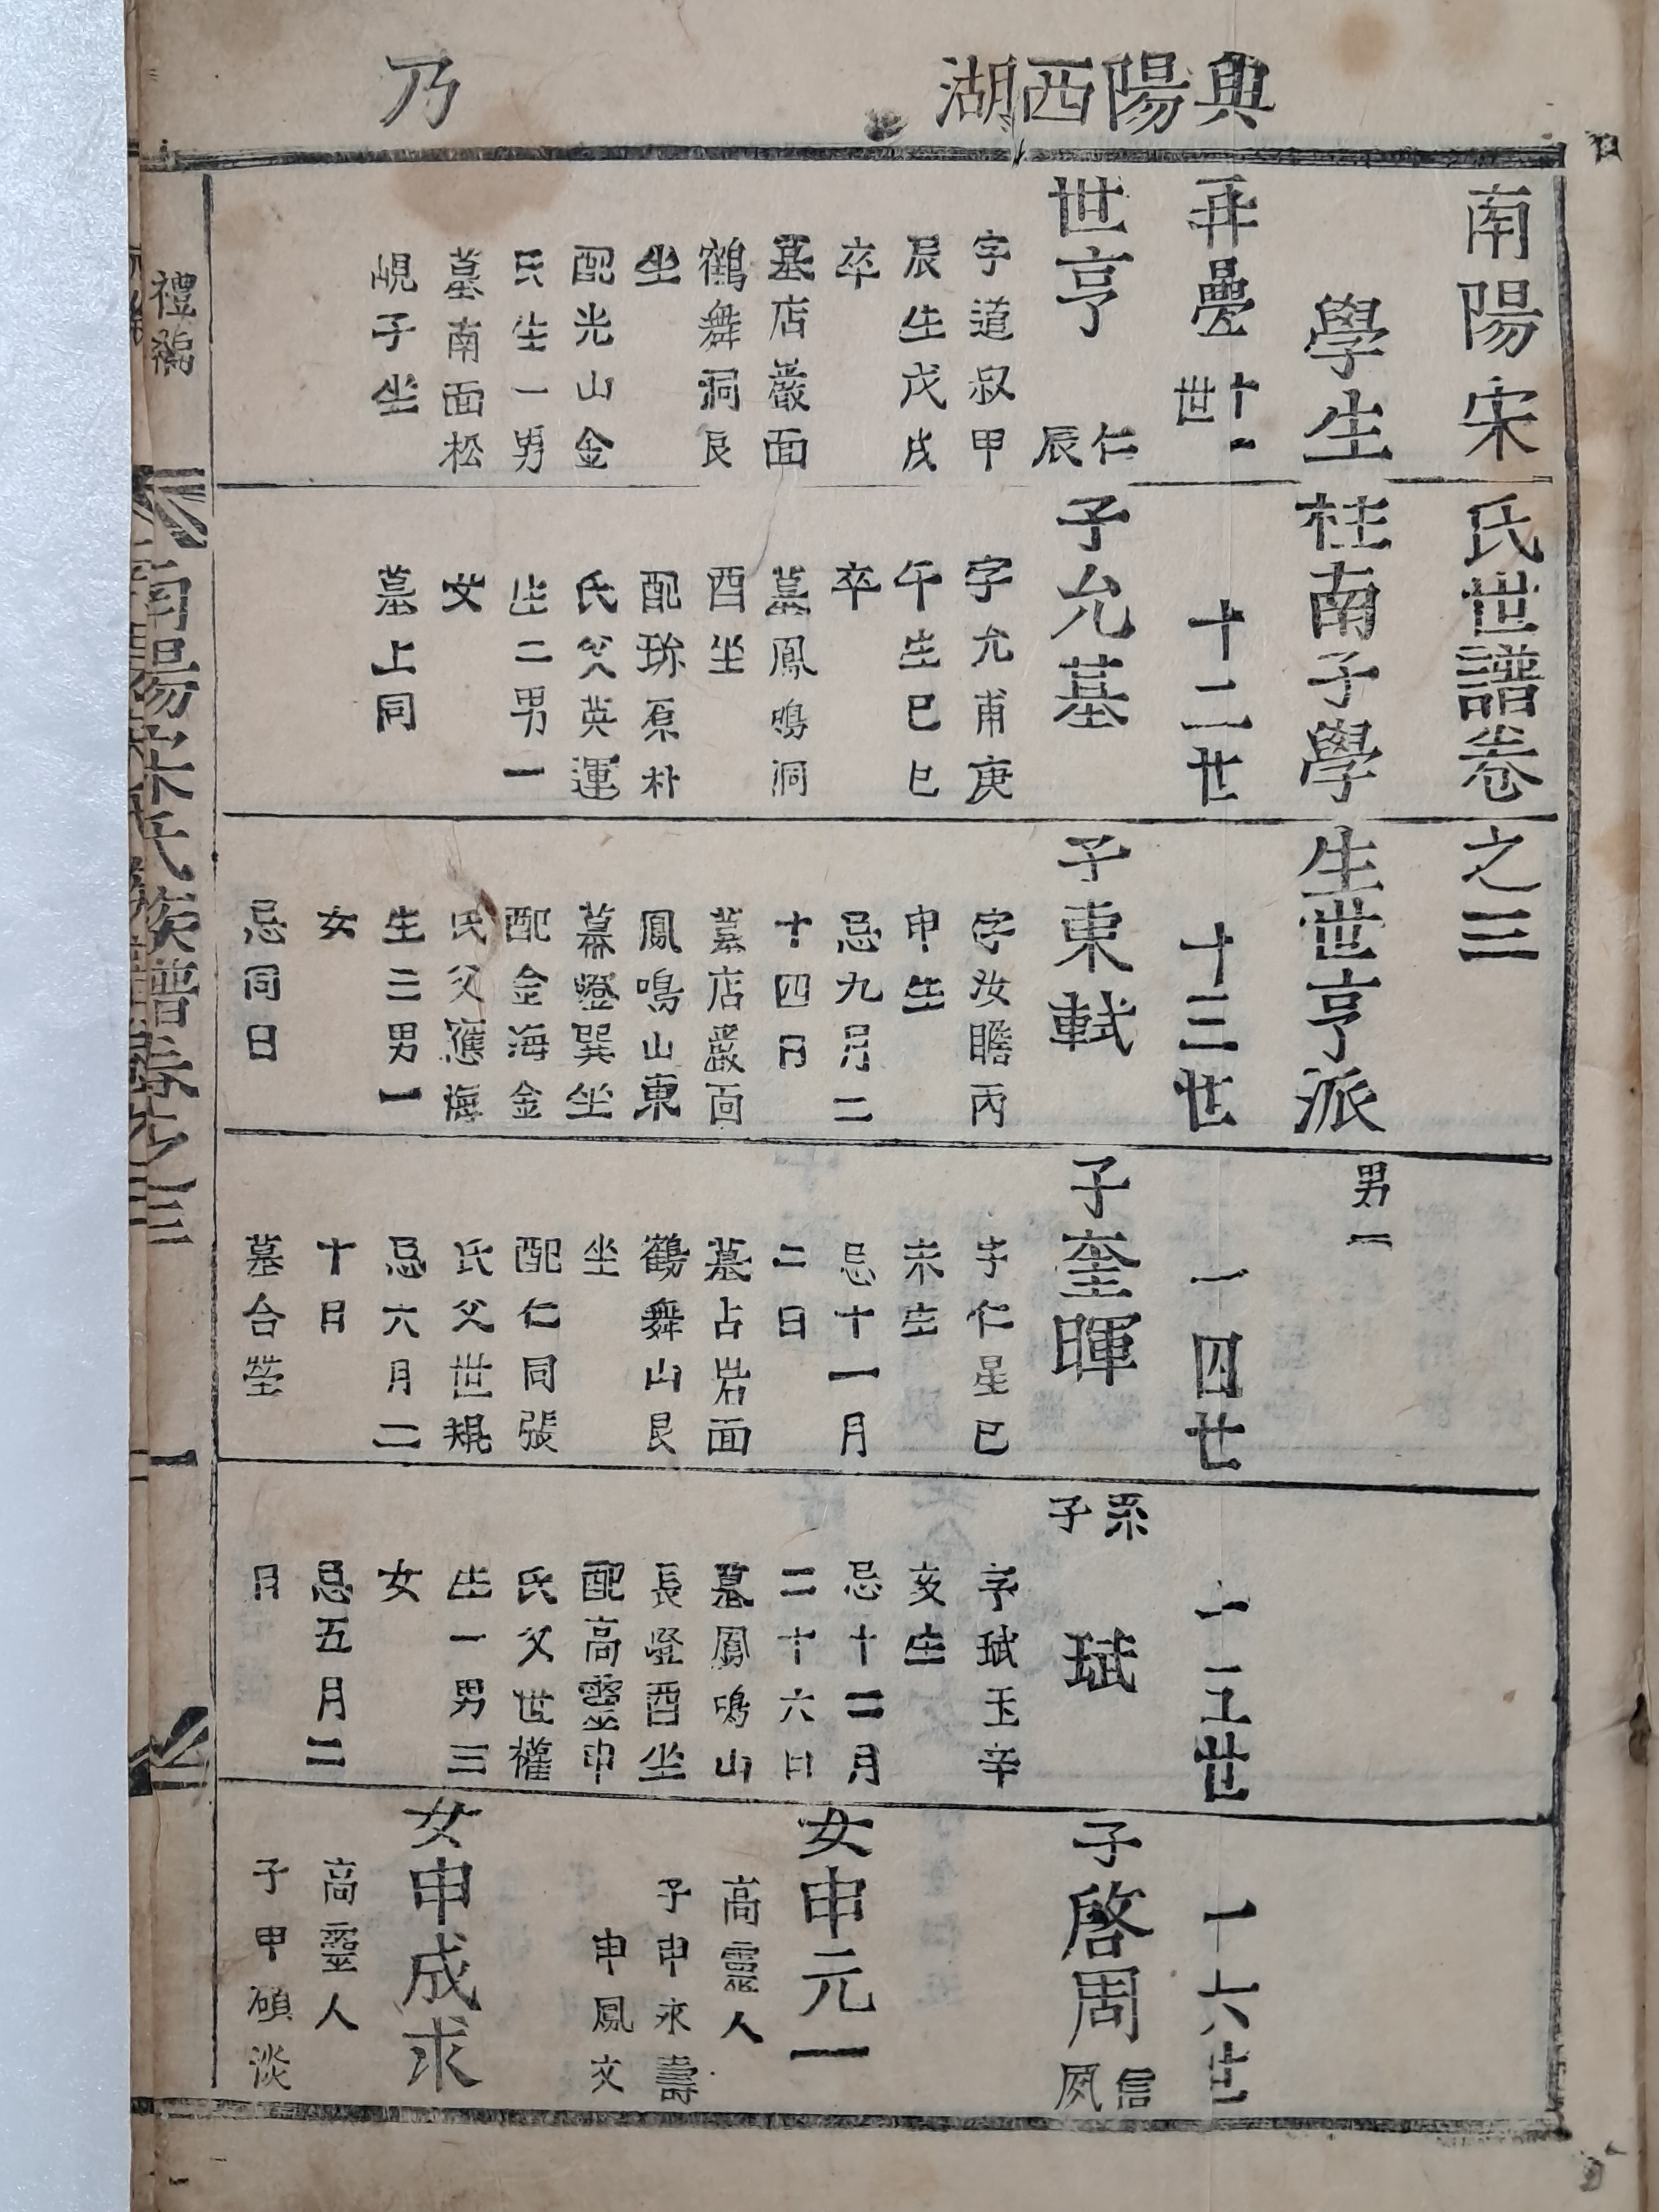 興陽西湖
乃
南陽宋氏世譜卷之三
學生桂南子學生世亨派
男一
再疊
十一
世
十二世
十三世
十四世
十五世
十六世
世亨
仁
辰
字道叔甲
辰生戊戌
卒
墓店巖面
鶴舞洞艮
坐
配光山金
氏生一男
墓南面松
峴子坐
子允墓
字允甫庚
午生巳巳
卒
墓鳳鳴洞
酉坐
配珎原朴
氏父英運
生二男一
女
墓上同
子東軾
字汝瞻丙
申生
忌九月二
十四日
墓店巖面
鳳鳴山東
幕嶝巽坐
配金海金
氏父應海
生三男一
女
忌同日
子奎暉
字仁星巳
未生
忌十一月
二日
墓占岩面
鶴舞山艮
坐
配仁同張
氏父世
忌六月二
十日
墓合塋
系
子
珷
字珷玉辛
亥生
忌十二月
二十六日
墓鳳鳴山
長嶝酉坐
配高靈申
氏父世權
生一男三
女
忌五月二
日
子啓周
信
夙
女申元一
高靈人
子申永壽
申鳳文
女申成求
高靈人
子甲碩淡
禮
南陽宋氏族譜卷之三
一